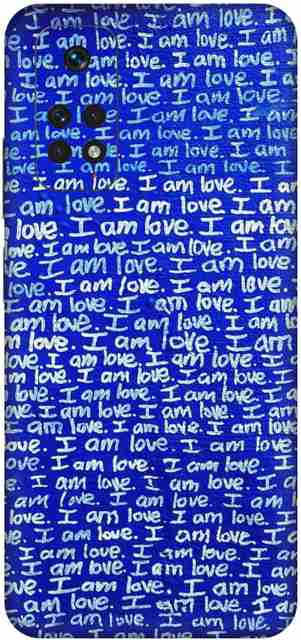 I am love. I am love. I
I am love. I am love. I am
love. I am love. I am love.
am love. I am love. I am
I am love.
I am love. I
am love. I am love. I am
I am love. I am
I am love. I am love. I am love
I am love. I am love. I
am love. I am love. I am
love. I am love. I am love.
love. I am love I am love. I
I am love. I am love.
I am love. I am love.
am love. I am love. I am
am love. I am love. I
love. I am love. I am
love. I am love. I am love. I
love. I am love. I am love.
love. I am love. I am love. I
love. I am love. I am love. I
I am love. I am love. I am love.
love. I am love. I am love
love. I am love. I am love.
I am love. I am love. I
am love. I am love. I am
love. I am love. I am love.
love. I am love. I am love. I
I am love. I am love.
I am love. I am love. I am
love. I am love. I am love.
am love. I am love. I